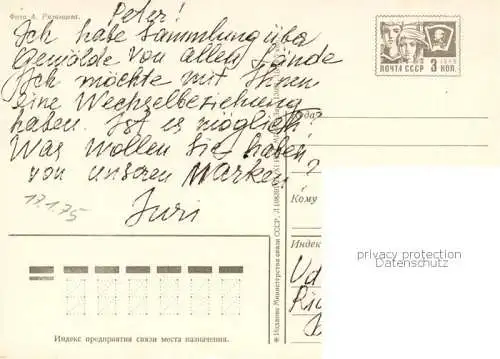 Фото А. Рязанцева.
Peter!
Ich habe Sammlung über
Gemälde von allen Lände
Ich möchte mit Ihnen
eine Wechselbeziehung
haben. Ist es möglich?
Was wollen Sie haben
von unseren Marken?
Juri
17.1.75
ПОЧТА СССР 3 КОП.
Куда
Кому
Индекс
Ud
Ric
privacy protection
Datenschutz
Издание Министерства связи СССР.
Индекс предприятия связи места назначения.